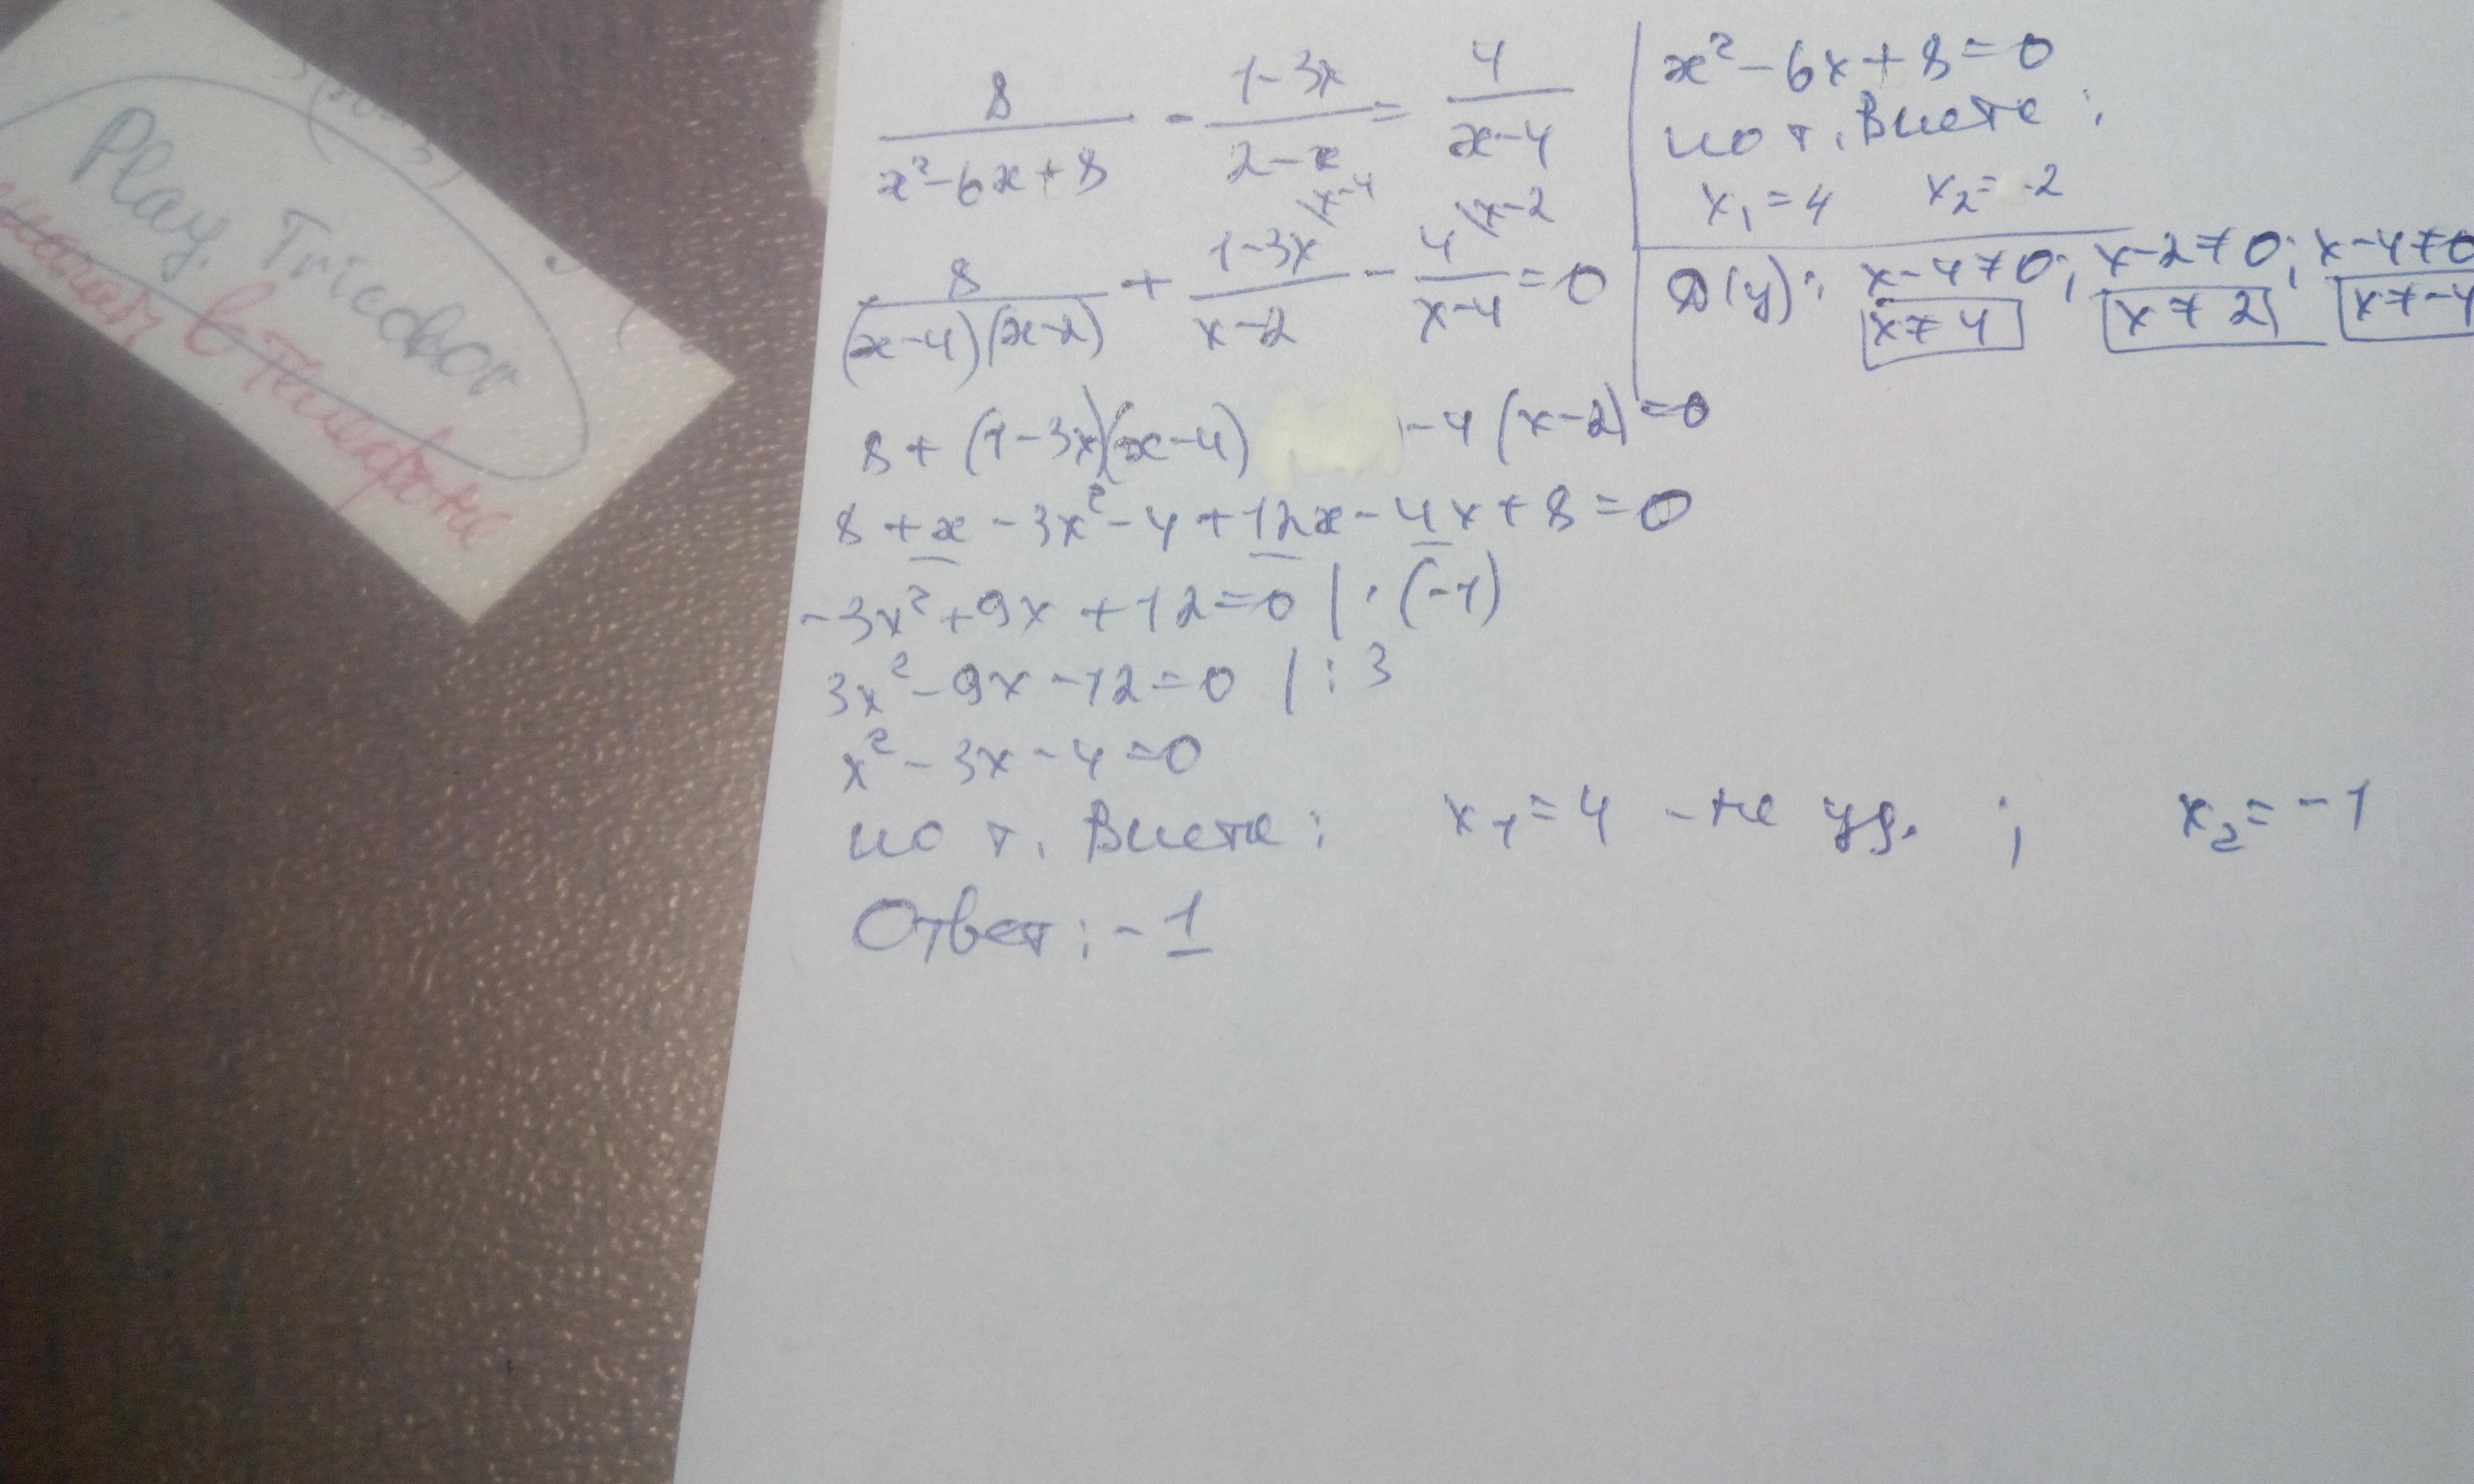 Play, Tricolor
в телефоне
8/(x²-6x+8) - (1-3x)/(2-x) = 4/(x-4)
8/((x-4)(x-2)) + (1-3x)\x-4/(x-2) - 4\x-2/(x-4) = 0
8+(1-3x)(x-4) -4(x-2)=0
8+x-3x²-4+12x-4x+8=0
-3x²+9x+12=0 | ·(-1)
3x²-9x-12=0 | :3
x²-3x-4=0
по т. Виета: x₁=4 - не уд. ; x₂=-1
Ответ: -1
x²-6x+8=0
по т. Виета:
x₁=4 x₂=2
D(y): x-4≠0; x-2≠0; x-4≠0
x≠4 x≠2 x≠-4